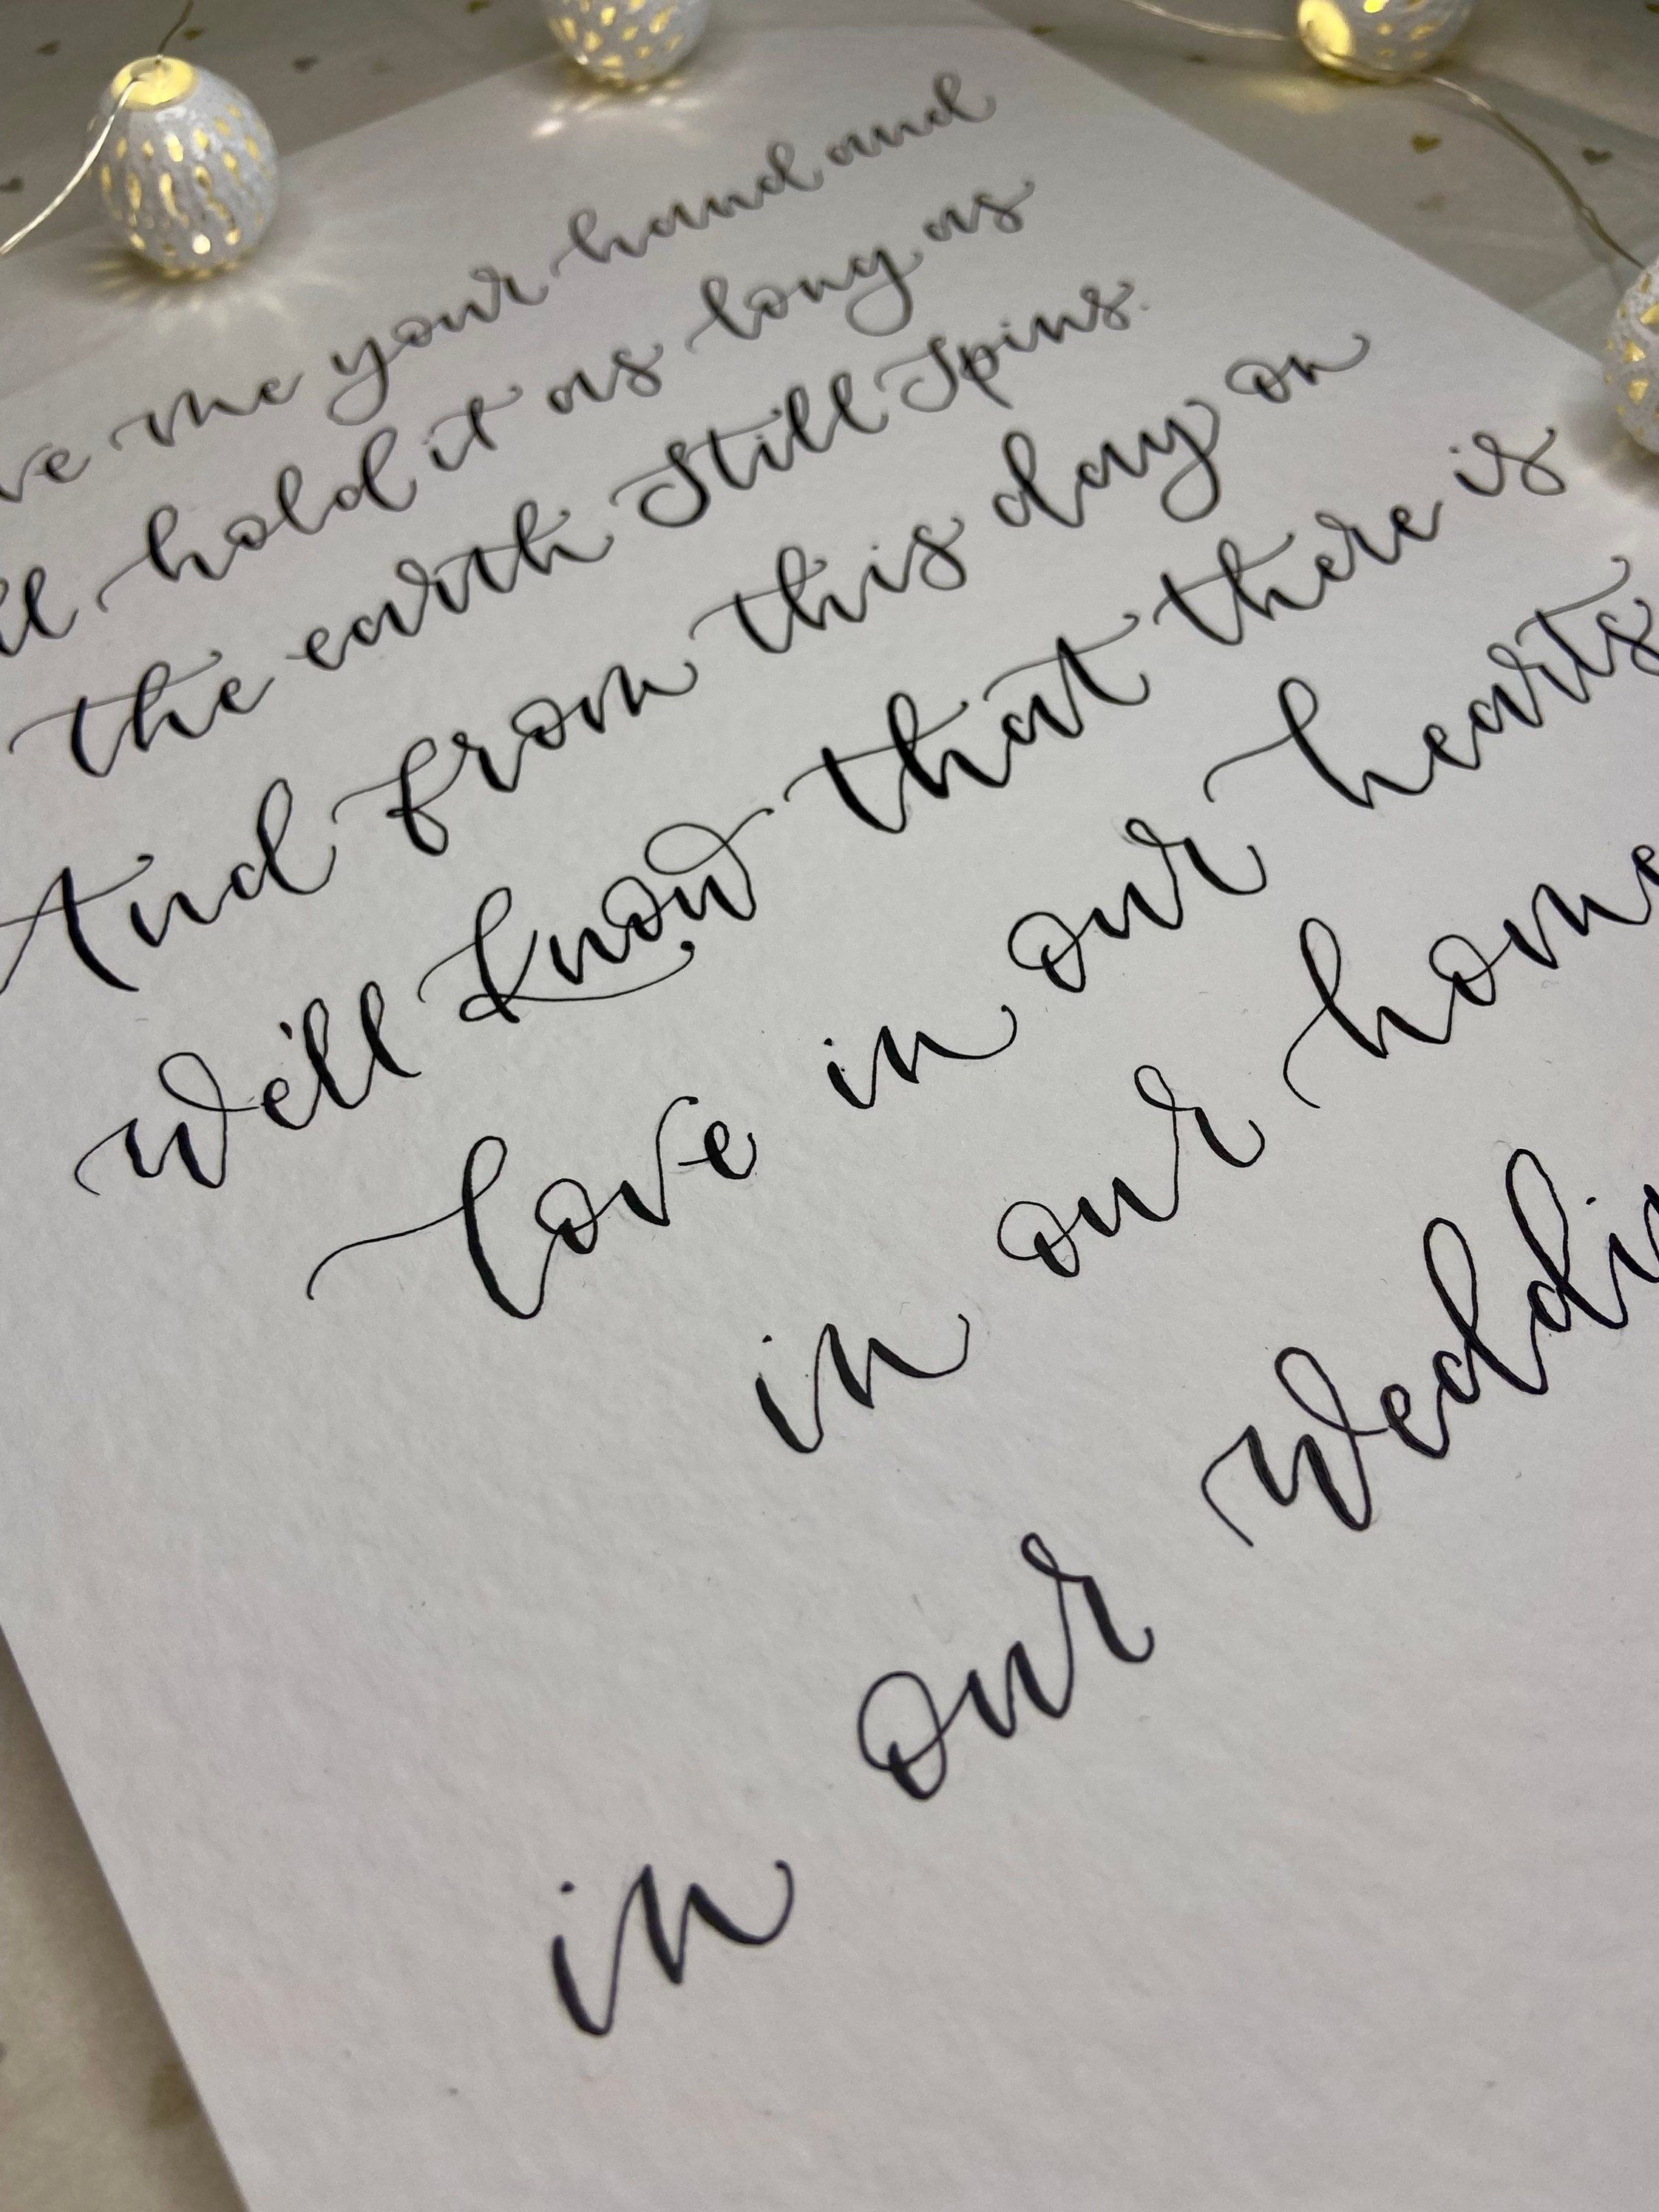 me your hand and
hold it as long as
the earth Still Spins.
And from this day on
we'll know that there is
love in our hearts
in our
in our